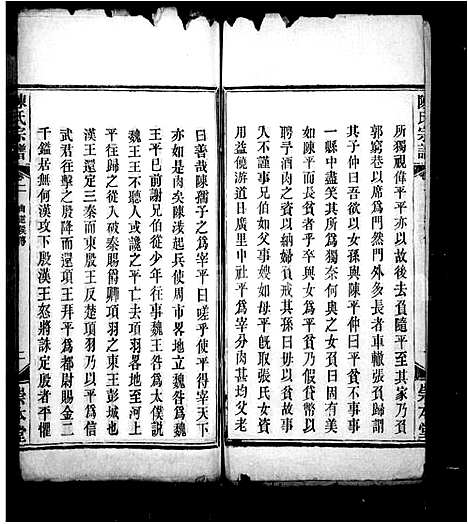 陳氏宗譜
所獨視偉平平亦以故後去負隨平至其家乃負
郭窮巷以席為門然門外多長者車轍張負歸謂
其子仲曰吾欲以女孫與陳平仲曰平貧不事事
一縣中盡笑其所為獨奈何與之女負曰固有美
如陳平而長貧者乎卒與女為平貧乃假貸幣以
聘予酒肉之資以納婦負戒其孫曰毋以貧故事
人不謹事兄伯如父事嫂如母平既取張氏女資
用益饒游道日廣里中社平為宰分肉甚均父老
崇本堂
曰善哉陳孺子之為宰平曰嗟乎使平得宰天下
亦如是肉矣陳涉起兵使周市畧地立魏咎為魏
王平已前謝兄伯從少年往事魏王咎為太僕説
魏王王不聽人或讒之平亡去項羽畧地至河上
平往歸之從入破秦賜爵卿項羽之東王彭城也
漢王還定三秦而東殷王反楚項羽乃以平為信
武君往擊之殷降而還項王拜平為都尉賜金二
千鎰居無何漢攻下殷漢王怒將誅定殷者平懼
陳氏宗譜
卷二
崇本堂